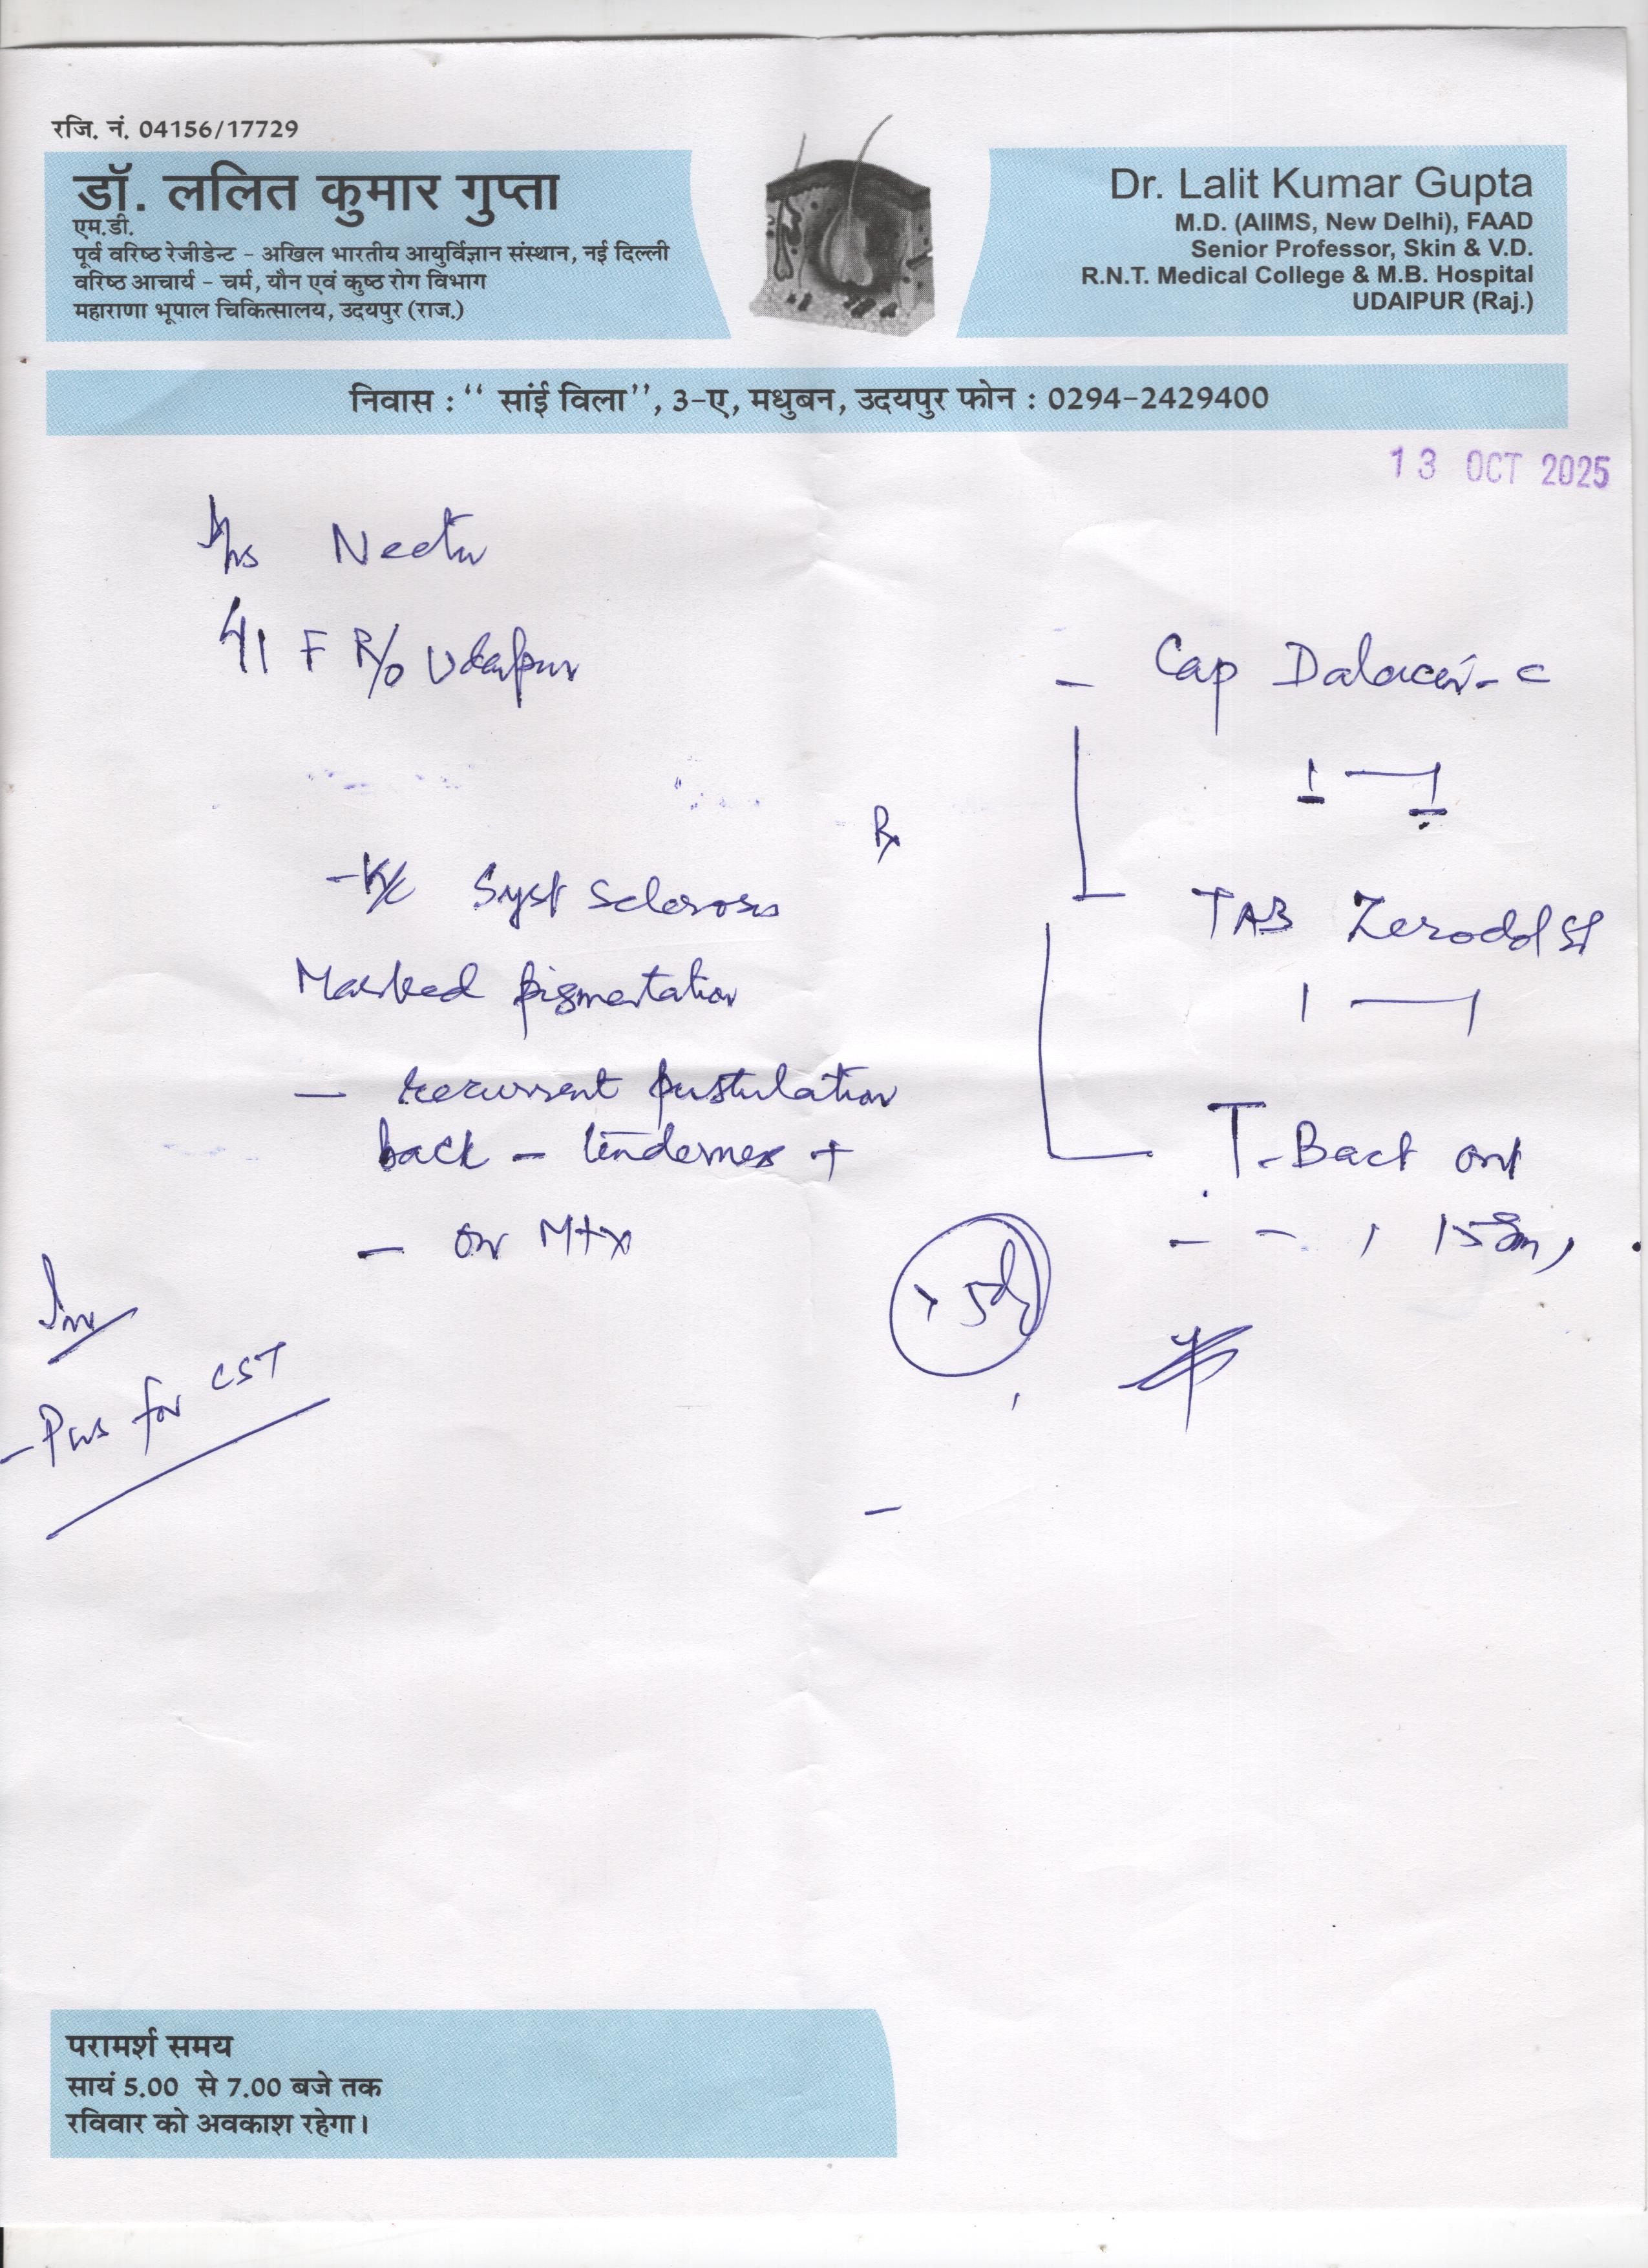 रजि. नं. 04156/17729
डॉ. ललित कुमार गुप्ता
एम.डी.
पूर्व वरिष्ठ रेजीडेन्ट - अखिल भारतीय आयुर्विज्ञान संस्थान, नई दिल्ली
वरिष्ठ आचार्य - चर्म, यौन एवं कुष्ठ रोग विभाग
महाराणा भूपाल चिकित्सालय, उदयपुर (राज.)
Dr. Lalit Kumar Gupta
M.D. (AIIMS, New Delhi), FAAD
Senior Professor, Skin & V.D.
R.N.T. Medical College & M.B. Hospital
UDAIPUR (Raj.)
निवास : “ सांई विला”, ३-ए, मधुबन, उदयपुर फोन : 0294-2429400
13 OCT 2025
Neetu
41 F R/o Udaipur
- K/c Syst Sclerosis
Marked pigmentation
- recurrent pustulation
back - tenderness +
- on Mtx
Inv
- Pus for CST
Rx
- Cap Dalacin-C
1 — 1
TAB Zerodol SP
1 — 1
T-Bact ont
x 5d
परामर्श समय
सायं 5.00 से 7.00 बजे तक
रविवार को अवकाश रहेगा।